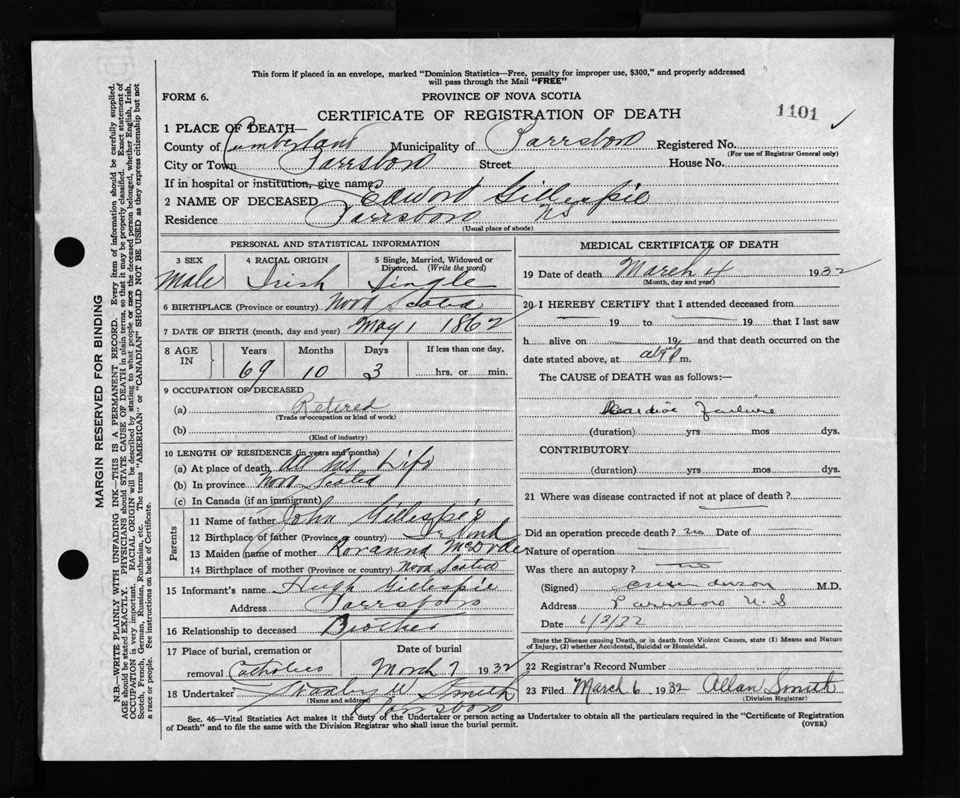 This form if placed in an envelope, marked "Dominion Statistics—Free, penalty for improper use, $300," and properly addressed
will pass through the Mail "FREE"
FORM 6.
PROVINCE OF NOVA SCOTIA
CERTIFICATE OF REGISTRATION OF DEATH
1101
1 PLACE OF DEATH—
County of Cumberland Municipality of Parrsboro Registered No.
(For use of Registrar General only)
City or Town Parrsboro Street House No.
If in hospital or institution, give name
2 NAME OF DECEASED Edward Gillespie
Residence Parrsboro NS
(Usual place of abode)
PERSONAL AND STATISTICAL INFORMATION
3 SEX 4 RACIAL ORIGIN 5 Single, Married, Widowed or
Divorced. (Write the word)
Male Irish Single
6 BIRTHPLACE (Province or country) Nova Scotia
7 DATE OF BIRTH (month, day and year) May 1 1862
8 AGE IN Years Months Days If less than one day,
69 10 3 hrs. or min.
9 OCCUPATION OF DECEASED
(a) Retired
(Trade or occupation or kind of work)
(b)
(Kind of industry)
10 LENGTH OF RESIDENCE (in years and months)
(a) At place of death All his Life
(b) In province Nova Scotia
(c) In Canada (if an immigrant)
Parents
11 Name of father John Gillespie
12 Birthplace of father (Province or country)
13 Maiden name of mother Roxanna
14 Birthplace of mother (Province or country) Nova Scotia
15 Informant's name Hugh Gillespie
Address Parrsboro
16 Relationship to deceased Brother
17 Place of burial, cremation or Date of burial
removal Catholics March 7 1932
18 Undertaker Stanley W Smith
(Name and address)
Parrsboro
MEDICAL CERTIFICATE OF DEATH
19 Date of death March 4 1932
(Month, day and year)
20 I HEREBY CERTIFY that I attended deceased from
19 to 19 that I last saw
h alive on 19 and that death occurred on the
date stated above, at m.
The CAUSE of DEATH was as follows:—
Cardiac Failure
(duration) yrs mos dys.
CONTRIBUTORY
(duration) yrs mos dys.
21 Where was disease contracted if not at place of death?
Did an operation precede death? no Date of
Nature of operation
Was there an autopsy? no
(Signed) M.D.
Address Parrsboro N.S
Date 6/3/32
State the Disease causing Death, or in death from Violent Causes, state (1) Means and Nature
of Injury, (2) whether Accidental, Suicidal or Homicidal.
22 Registrar's Record Number
23 Filed March 6 1932 Allan Smith
(Division Registrar)
Sec. 46—Vital Statistics Act makes it the duty of the Undertaker or person acting as Undertaker to obtain all the particulars required in the "Certificate of Registration
of Death" and to file the same with the Division Registrar who shall issue the burial permit.
(OVER)
MARGIN RESERVED FOR BINDING
N.B.—WRITE PLAINLY WITH UNFADING INK—THIS IS A PERMANENT RECORD. Every item of information should be carefully supplied.
AGE should be stated EXACTLY. PHYSICIANS should STATE CAUSE OF DEATH in plain terms, so that it may be properly classified. Exact statement of
OCCUPATION is very important. RACIAL ORIGIN will be described by stating to what people or race the deceased person belonged, whether English, Irish,
Scotch, French, German, Russian, Ruthenian, etc. The terms "AMERICAN" or "CANADIAN" SHOULD NOT BE USED as they express citizenship but not
a race or people. See instructions on back of Certificate.